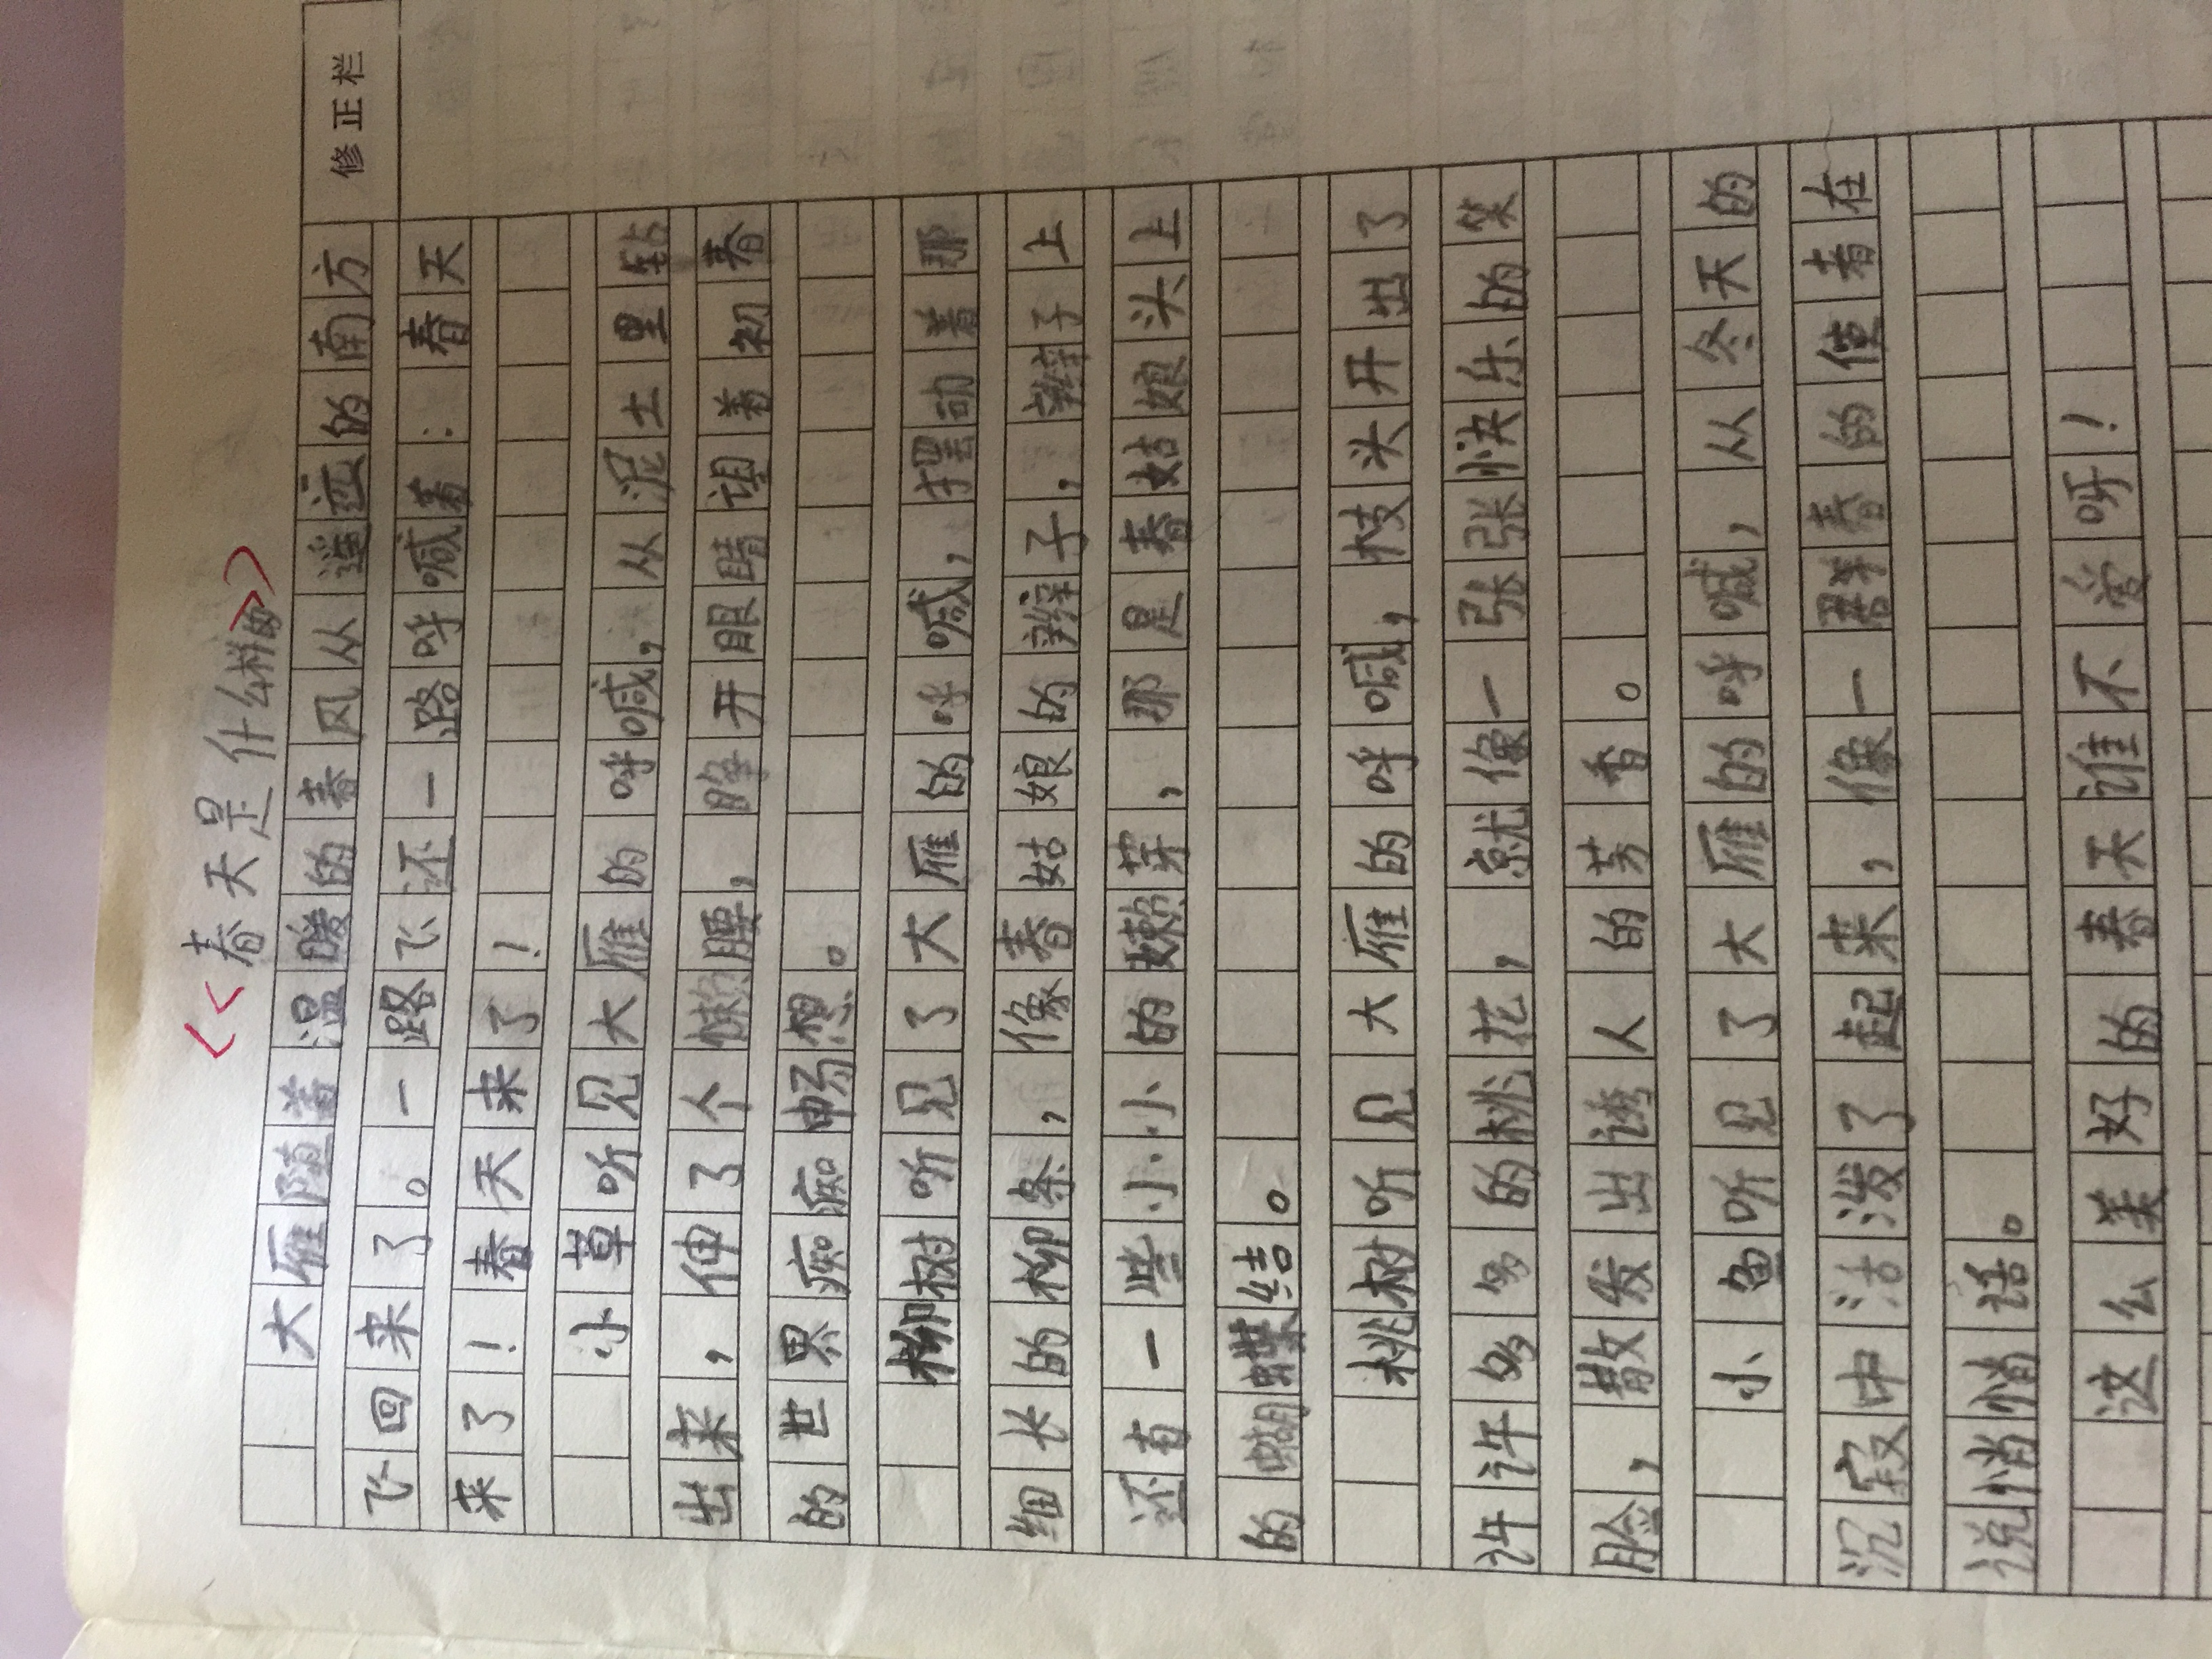 《春天是什么样的》
修正栏
大雁随着温暖的春风从遥远的南方
飞回来了。一路飞还一路呼喊着：春天
来了！春天来了！
小草听见大雁的呼喊，从泥土里钻
出来，伸了个懒腰，睁开眼睛望着初春
的世界痴痴畅想。
柳树听见了大雁的呼喊，摆动着那
细长的柳条，像春姑娘的辫子，辫子上
还有一些小小的嫩芽，那是春姑娘头上
的蝴蝶结。
桃树听见大雁的呼喊，枝头开出了
许许多多的桃花，就像一张张快乐的笑
脸，散发出诱人的芳香。
小鱼听见了大雁的呼喊，从冬天的
沉寂中活泼了起来，像一群春的使者在
说悄悄话。
这么美好的春天谁不爱呀！